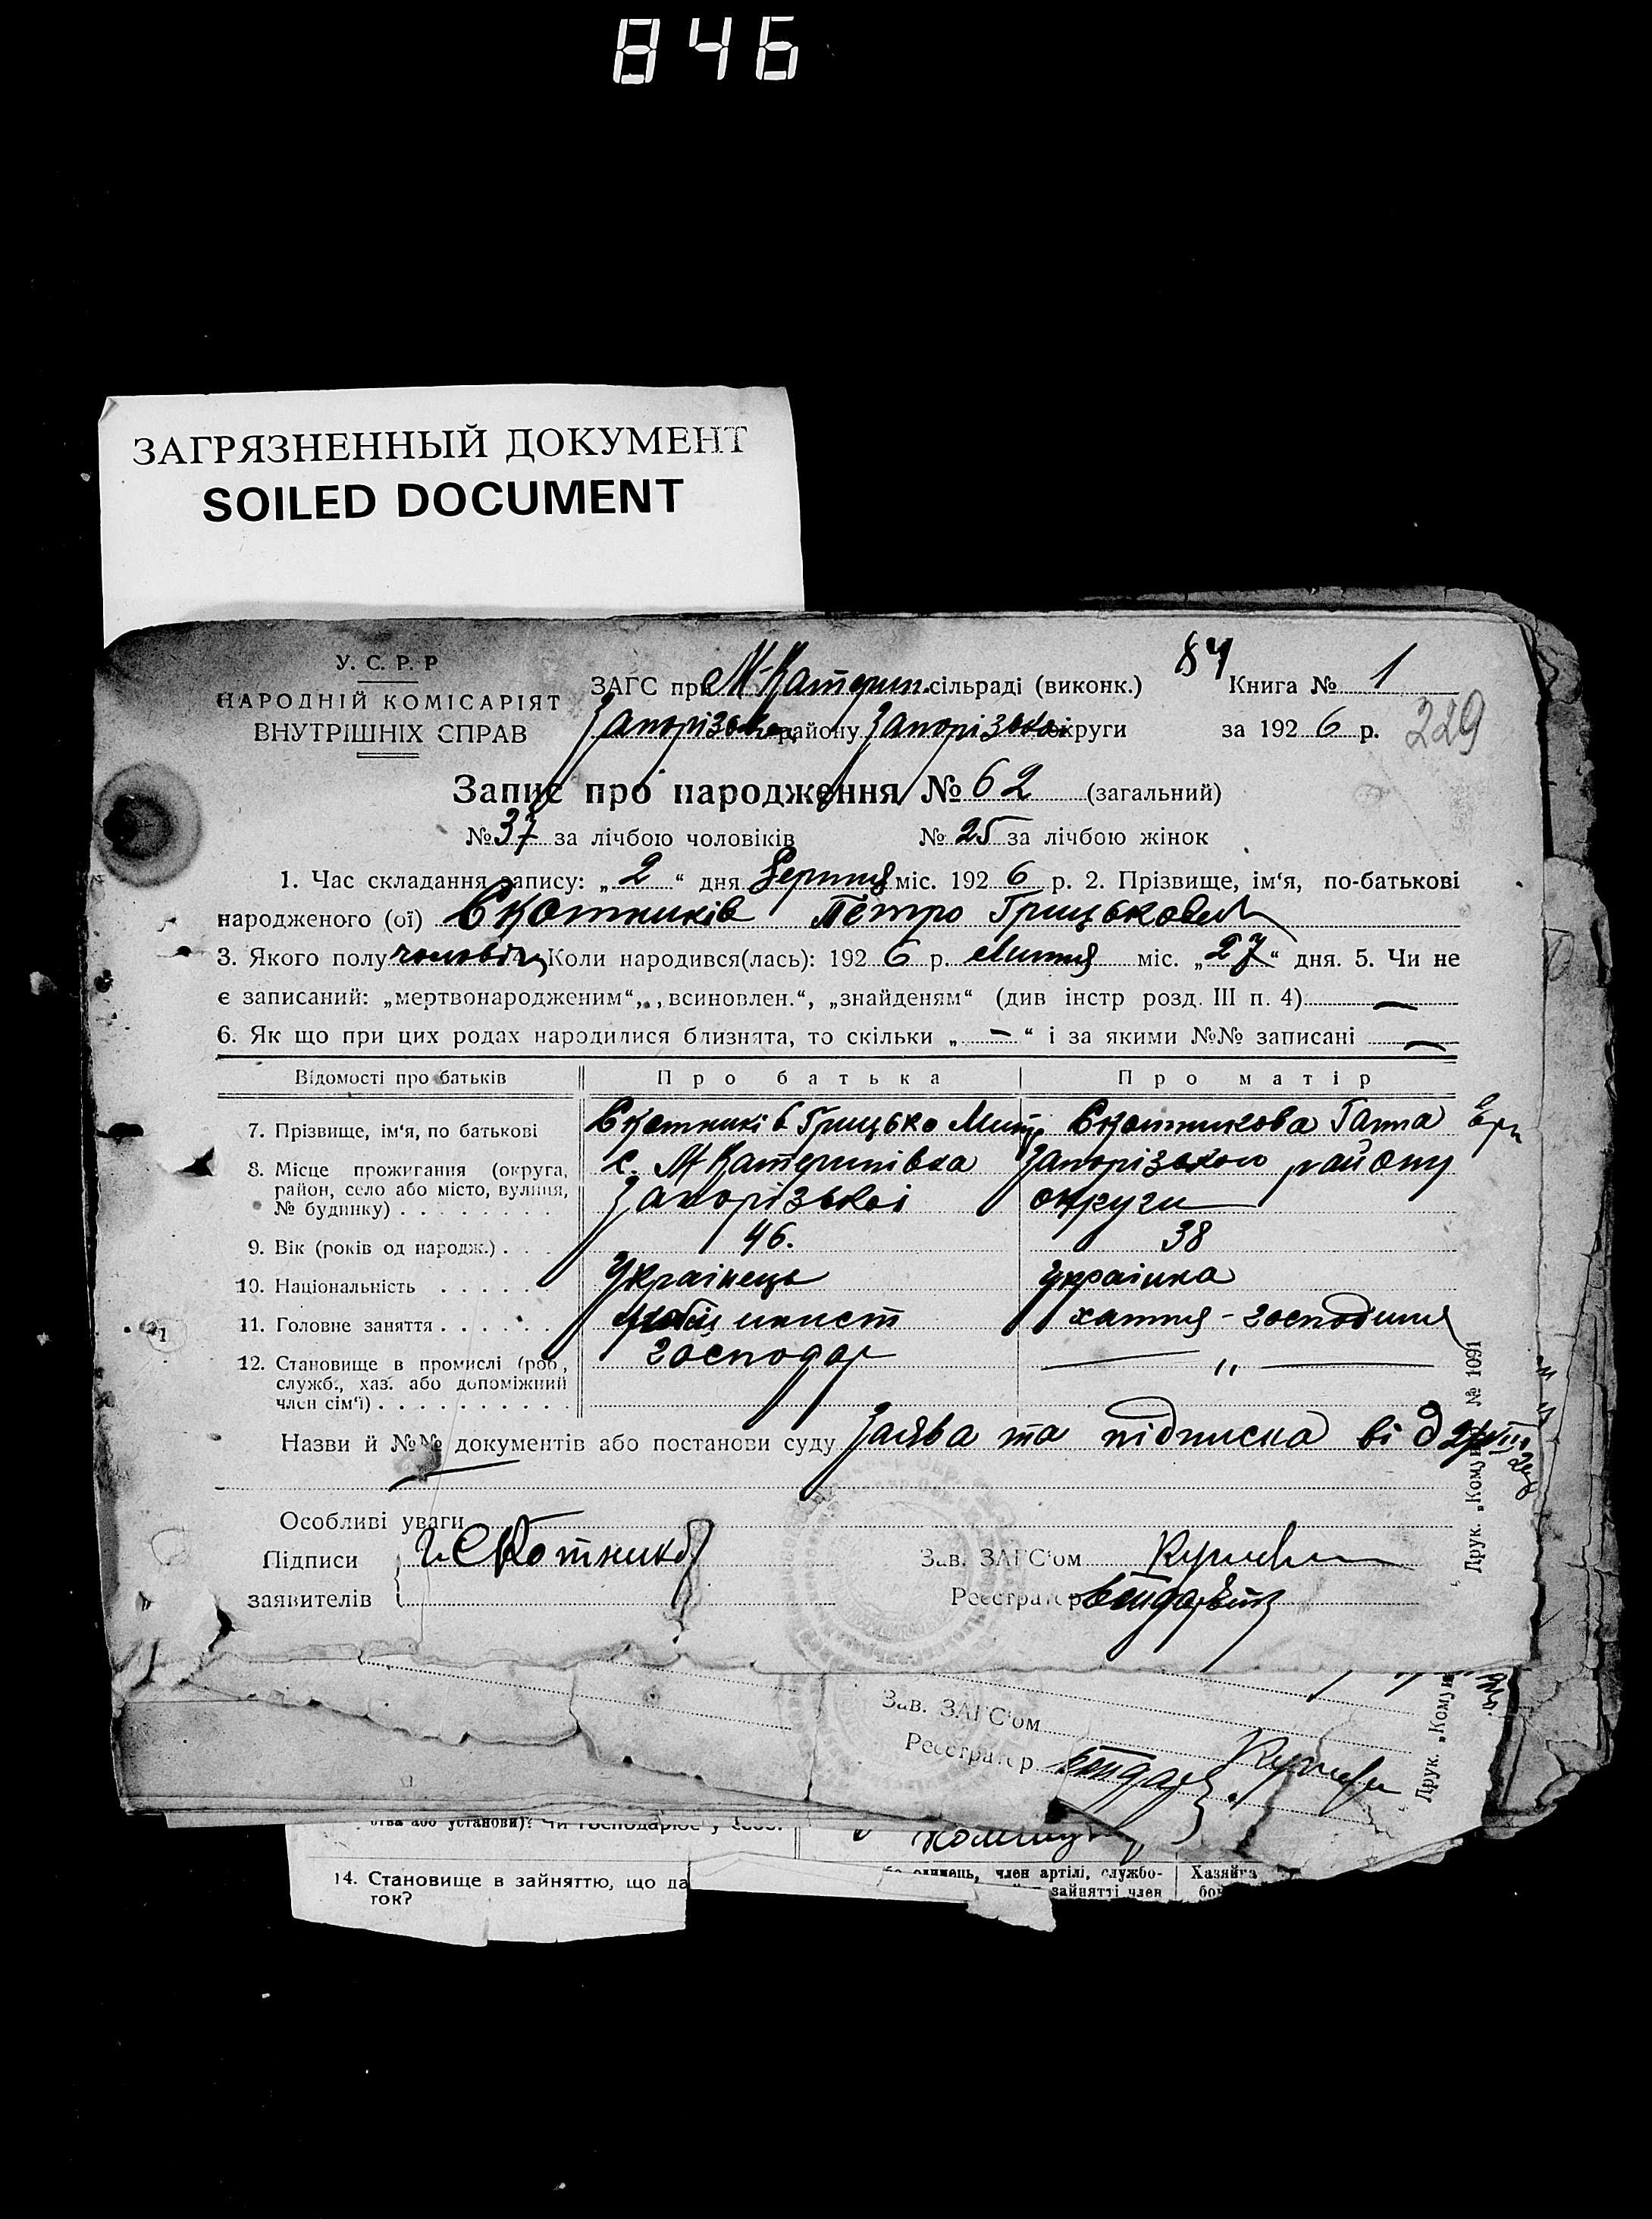 846
ЗАГРЯЗНЕННЫЙ ДОКУМЕНТ
SOILED DOCUMENT
84
У. С. Р. Р
НАРОДНІЙ КОМІСАРІЯТ
ВНУТРІШНІХ СПРАВ
ЗАГС при М-Катерин. сільраді (виконк.)
Запорізького району Запорізької округи
Книга № 1
за 1926 р.
229
Запис про народження № 62 (загальний)
№ 37 за лічбою чоловіків № 25 за лічбою жінок
1. Час складання запису: „2“ дня Серпня міс. 1926 р. 2. Прізвище, ім‘я, по-батькові
народженого (ої) Скотників Петро Грицькович
3. Якого полу Коли народився(лась): 1926 р. Липня міс. „27“ дня. 5. Чи не
є записаний: „мертвонародженим“, „всиновлен.“, „знайденям“ (див інстр розд. III п. 4) —
6. Як що при цих родах народилися близнята, то скільки „—“ і за якими №№ записані —
Відомості про батьків Про батька Про матір
7. Прізвище, ім‘я, по батькові Скотників Грицько Скотникова Ганна
8. Місце прожигання (округа, район, село або місто, вулиця, № будинку) с. М Катеринівка Запорізького району
Запорізької округи
9. Вік (років од народж.) 46. 38
10. Національність Українець українка
11. Головне заняття хатня - господиня
12. Становище в промислі (роб, служб., хаз. або допоміжний член сім‘ї) господар — „ —
Назви й №№ документів або постанови суду Заява та підписка від
Особливі уваги
Підписи
заявителів
Г. Скотників
Зав. ЗАГС‘ом
Реєстратор
Друк. „Комун № 1091
Зав. ЗАГС‘ом
Реєстратор
Друк. „Комун
ства або установи)? Чи господарює у
14. Становище в зайняттю, що да
ток?
одинець, член артілі, службо-
зайнятті член
Хазяйка